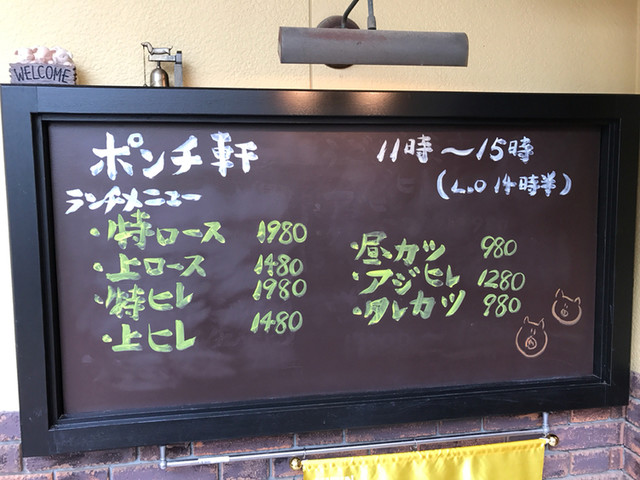 WELCOME
ポンチ軒
11時〜15時
(L.O 14時半)
ランチメニュー
・特ロース 1980
・上ロース 1480
・特ヒレ 1980
・上ヒレ 1480
・昼カツ 980
・アジヒレ 1280
・タレカツ 980